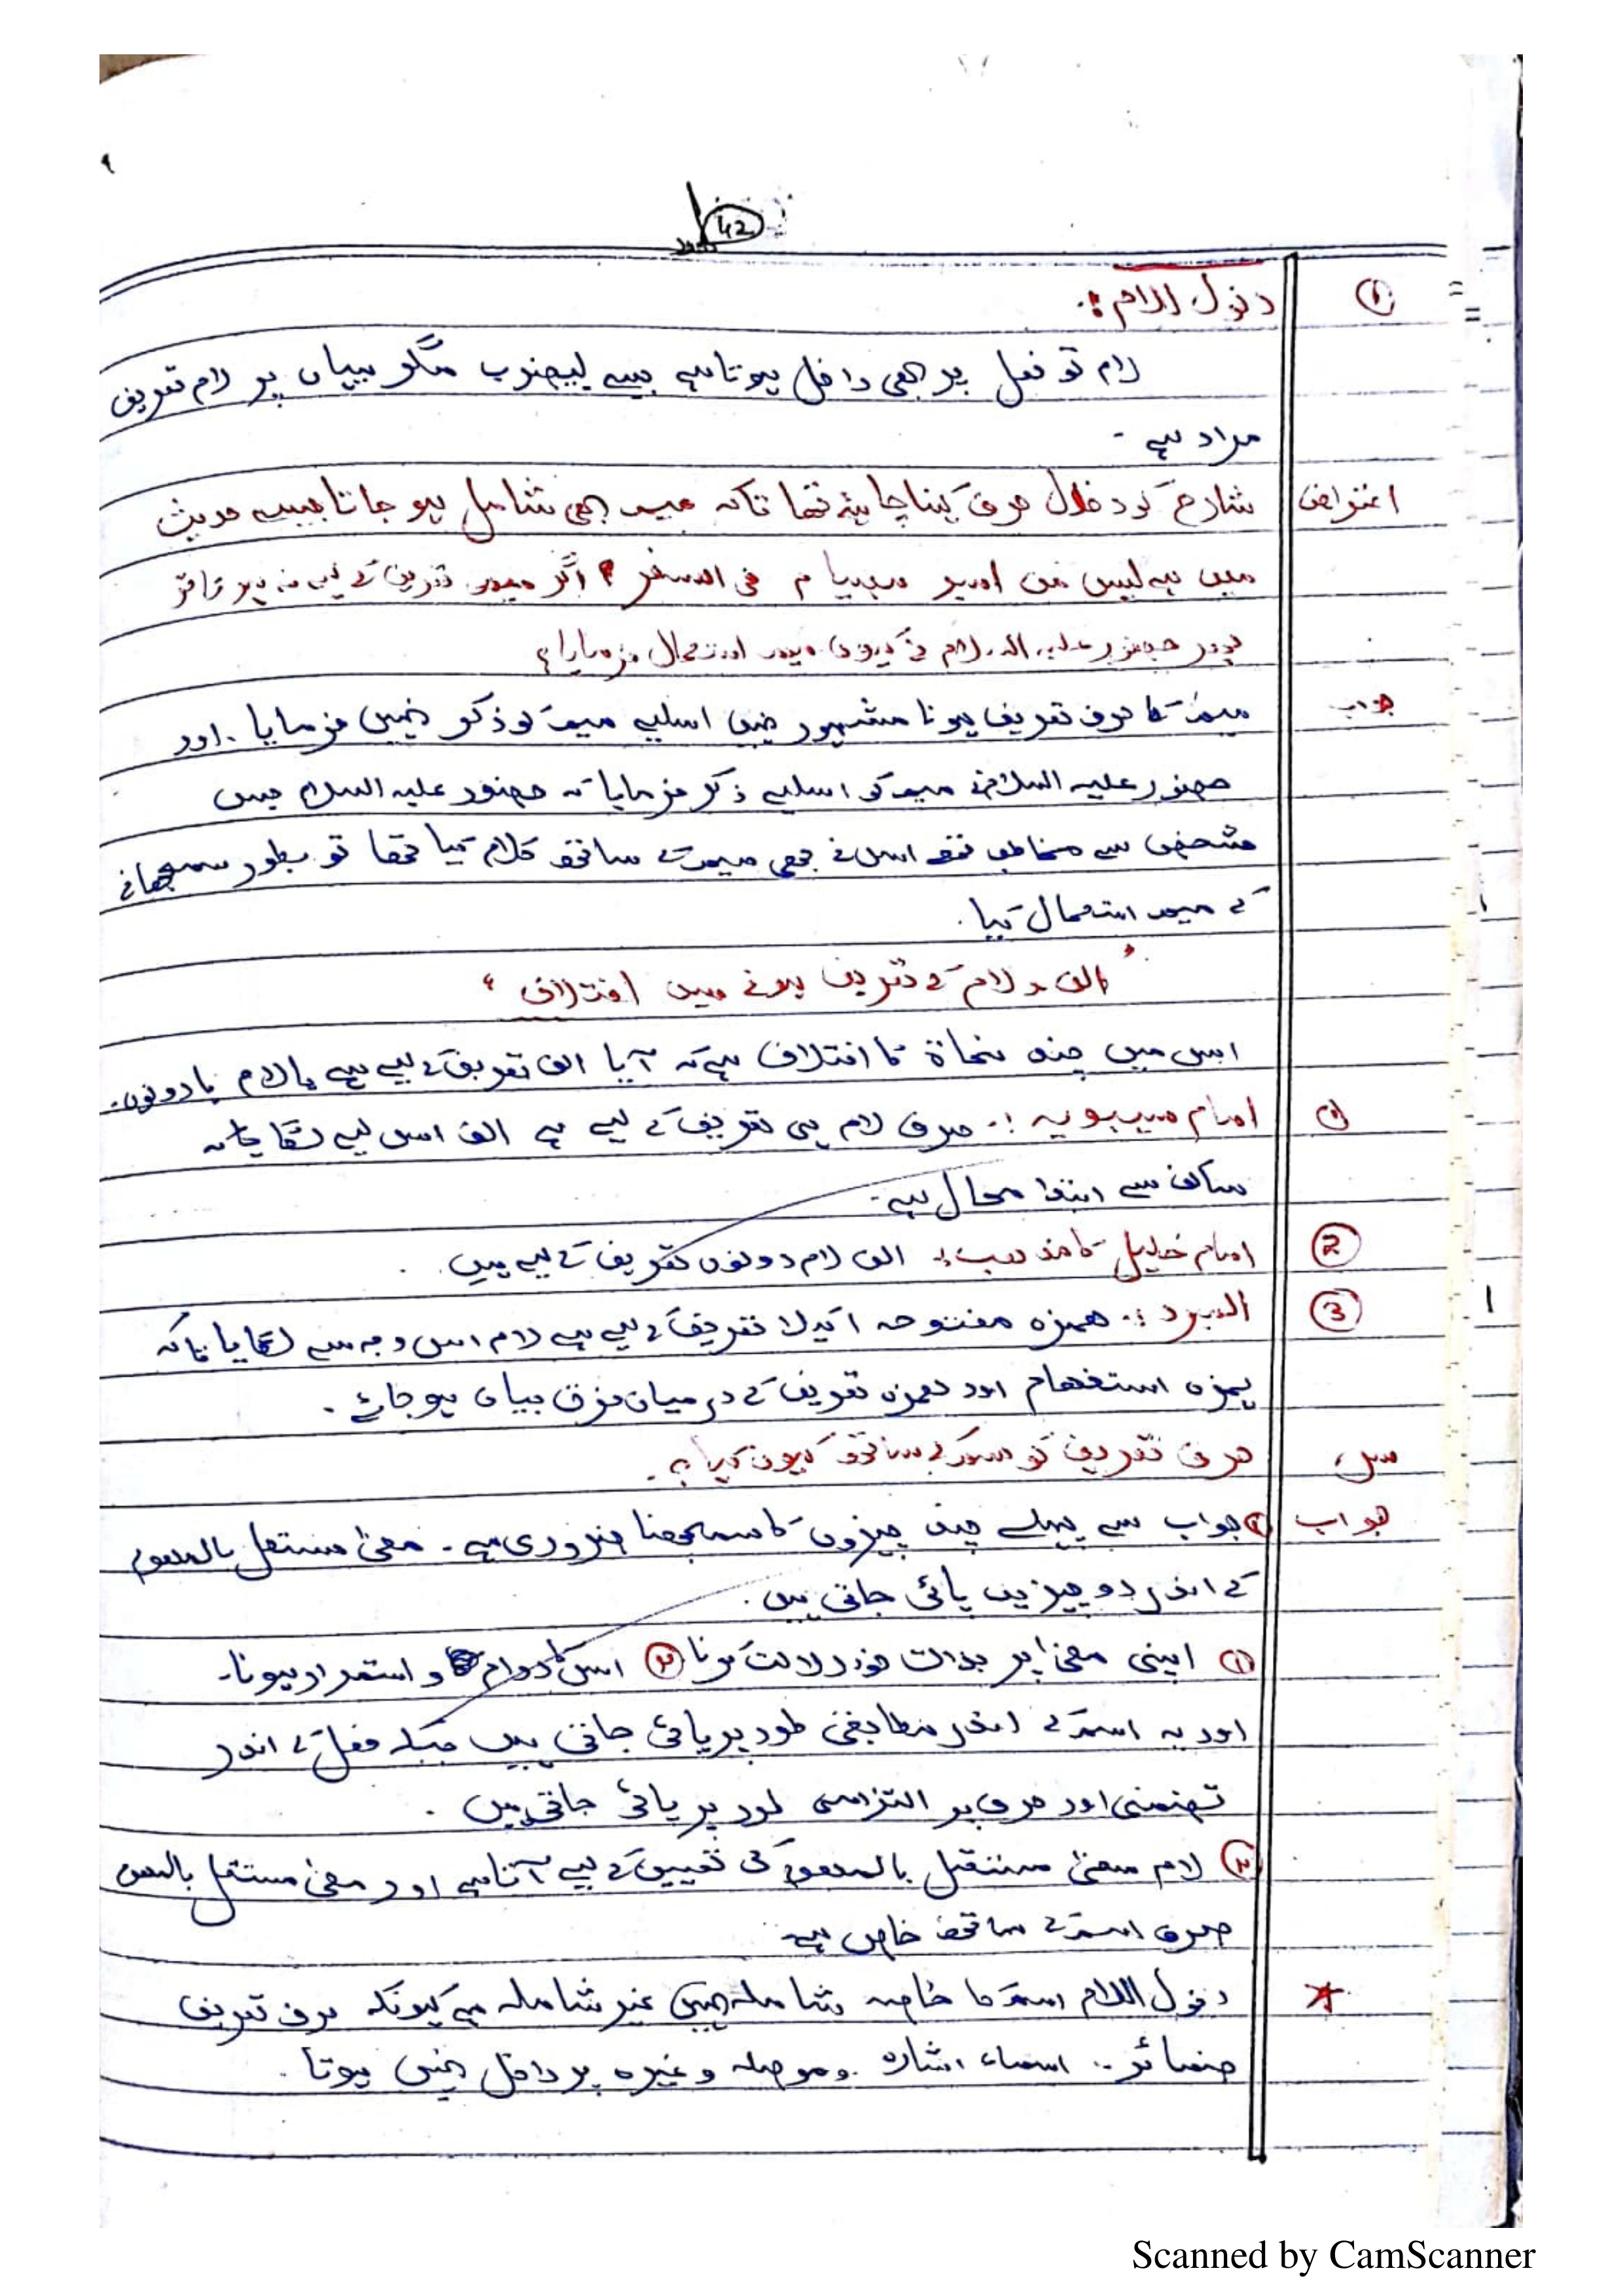 42
① دخول اللام :.
لام تو فعل پر بھی داخل ہوتا ہے جیسے لیضرب مگر یہاں پر لام تعریف
مراد ہے -
اعتراض شارح کو دخول حرف کہنا چاہئے تھا تاکہ میم بھی شامل ہو جاتا جیسے حدیث
میں ہے لیس من امبر مصیام فی السفر ؟ اگر میم تعریف کے لیے نہ ہو تا تو
حضور علیہ السلام نے کیوں میم استعمال فرمایا؟
جواب میم کا حرف تعریف ہونا مشہور نہیں اسلیے میم کو ذکر نہیں فرمایا . اور
حضور علیہ السلام نے میم کو اسلیے ذکر فرمایا کہ حضور علیہ السلام جس
شخص سے مخاطب تھے اس نے بھی میم کے ساتھ کلام کیا تھا تو بطور سمجھانے
کے میم استعمال کیا .
" الف و لام کے تعریف ہونے میں اختلاف "
اس میں چند نحاۃ کا اختلاف ہے کہ آیا الف تعریف کے لیے ہے یا لام یا دونوں .
① امام سیبویہ :. صرف لام ہی تعریف کے لیے ہے الف اس لیے لگایا کہ
ساکن سے ابتدا محال ہے -
② امام خلیل کا مذہب : الف لام دونوں تعریف کے لیے ہیں .
③ المبرد :. ھمزہ مفتوحہ اکیلا تعریف کے لیے ہے لام اس وجہ سے لگایا تاکہ
ہمزہ استفھام اور ھمزہ تعریف کے درمیان فرق بیان ہو جائے .
حرف تعریف کو اسم کے ساتھ کیوں کیا ؟ .
جواب ① جواب سے پہلے چند چیزوں کا سمجھنا ضروری ہے - معنیٰ مستقل بالمفھوم
کے اندر دو چیزیں پائی جاتی ہیں .
① اپنی معنیٰ پر بذات خود دلالت کرنا ② اس کا دوام و استمرار ہونا -
اور یہ اسم کے اندر مطابقی طور پر پائی جاتی ہیں جبکہ فعل کے اندر
تضمنی اور حرف پر التزامی طور پر پائی جاتی ہیں .
② لام معنیٰ مستقل بالمفھوم کی تعیین کے لیے آتا ہے اور معنیٰ مستقل
صرف اسم کے ساتھ خاص ہے
★ دخول اللام اسم کا خاصہ شاملہ نہیں غیر شاملہ ہے کیونکہ حرف تعریف
ضمائر .. اسماء اشارہ . و موصولہ وغیرہ پر داخل نہیں ہوتا .
Scanned by CamScanner